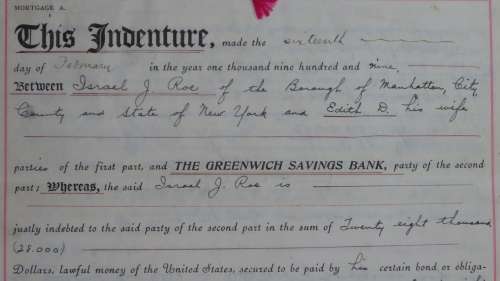 MORTGAGE A.
This Indenture, made the sixteenth
day of February in the year one thousand nine hundred and nine,
Between Israel J. Roe of the Borough of Manhattan, City
County and State of New York and Edith D. his wife
parties of the first part, and THE GREENWICH SAVINGS BANK, party of the second
part; Whereas, the said Israel J. Roe is
justly indebted to the said party of the second part in the sum of Twenty eight thousand
(28.000)
Dollars, lawful money of the United States, secured to be paid by his certain bond or obliga-